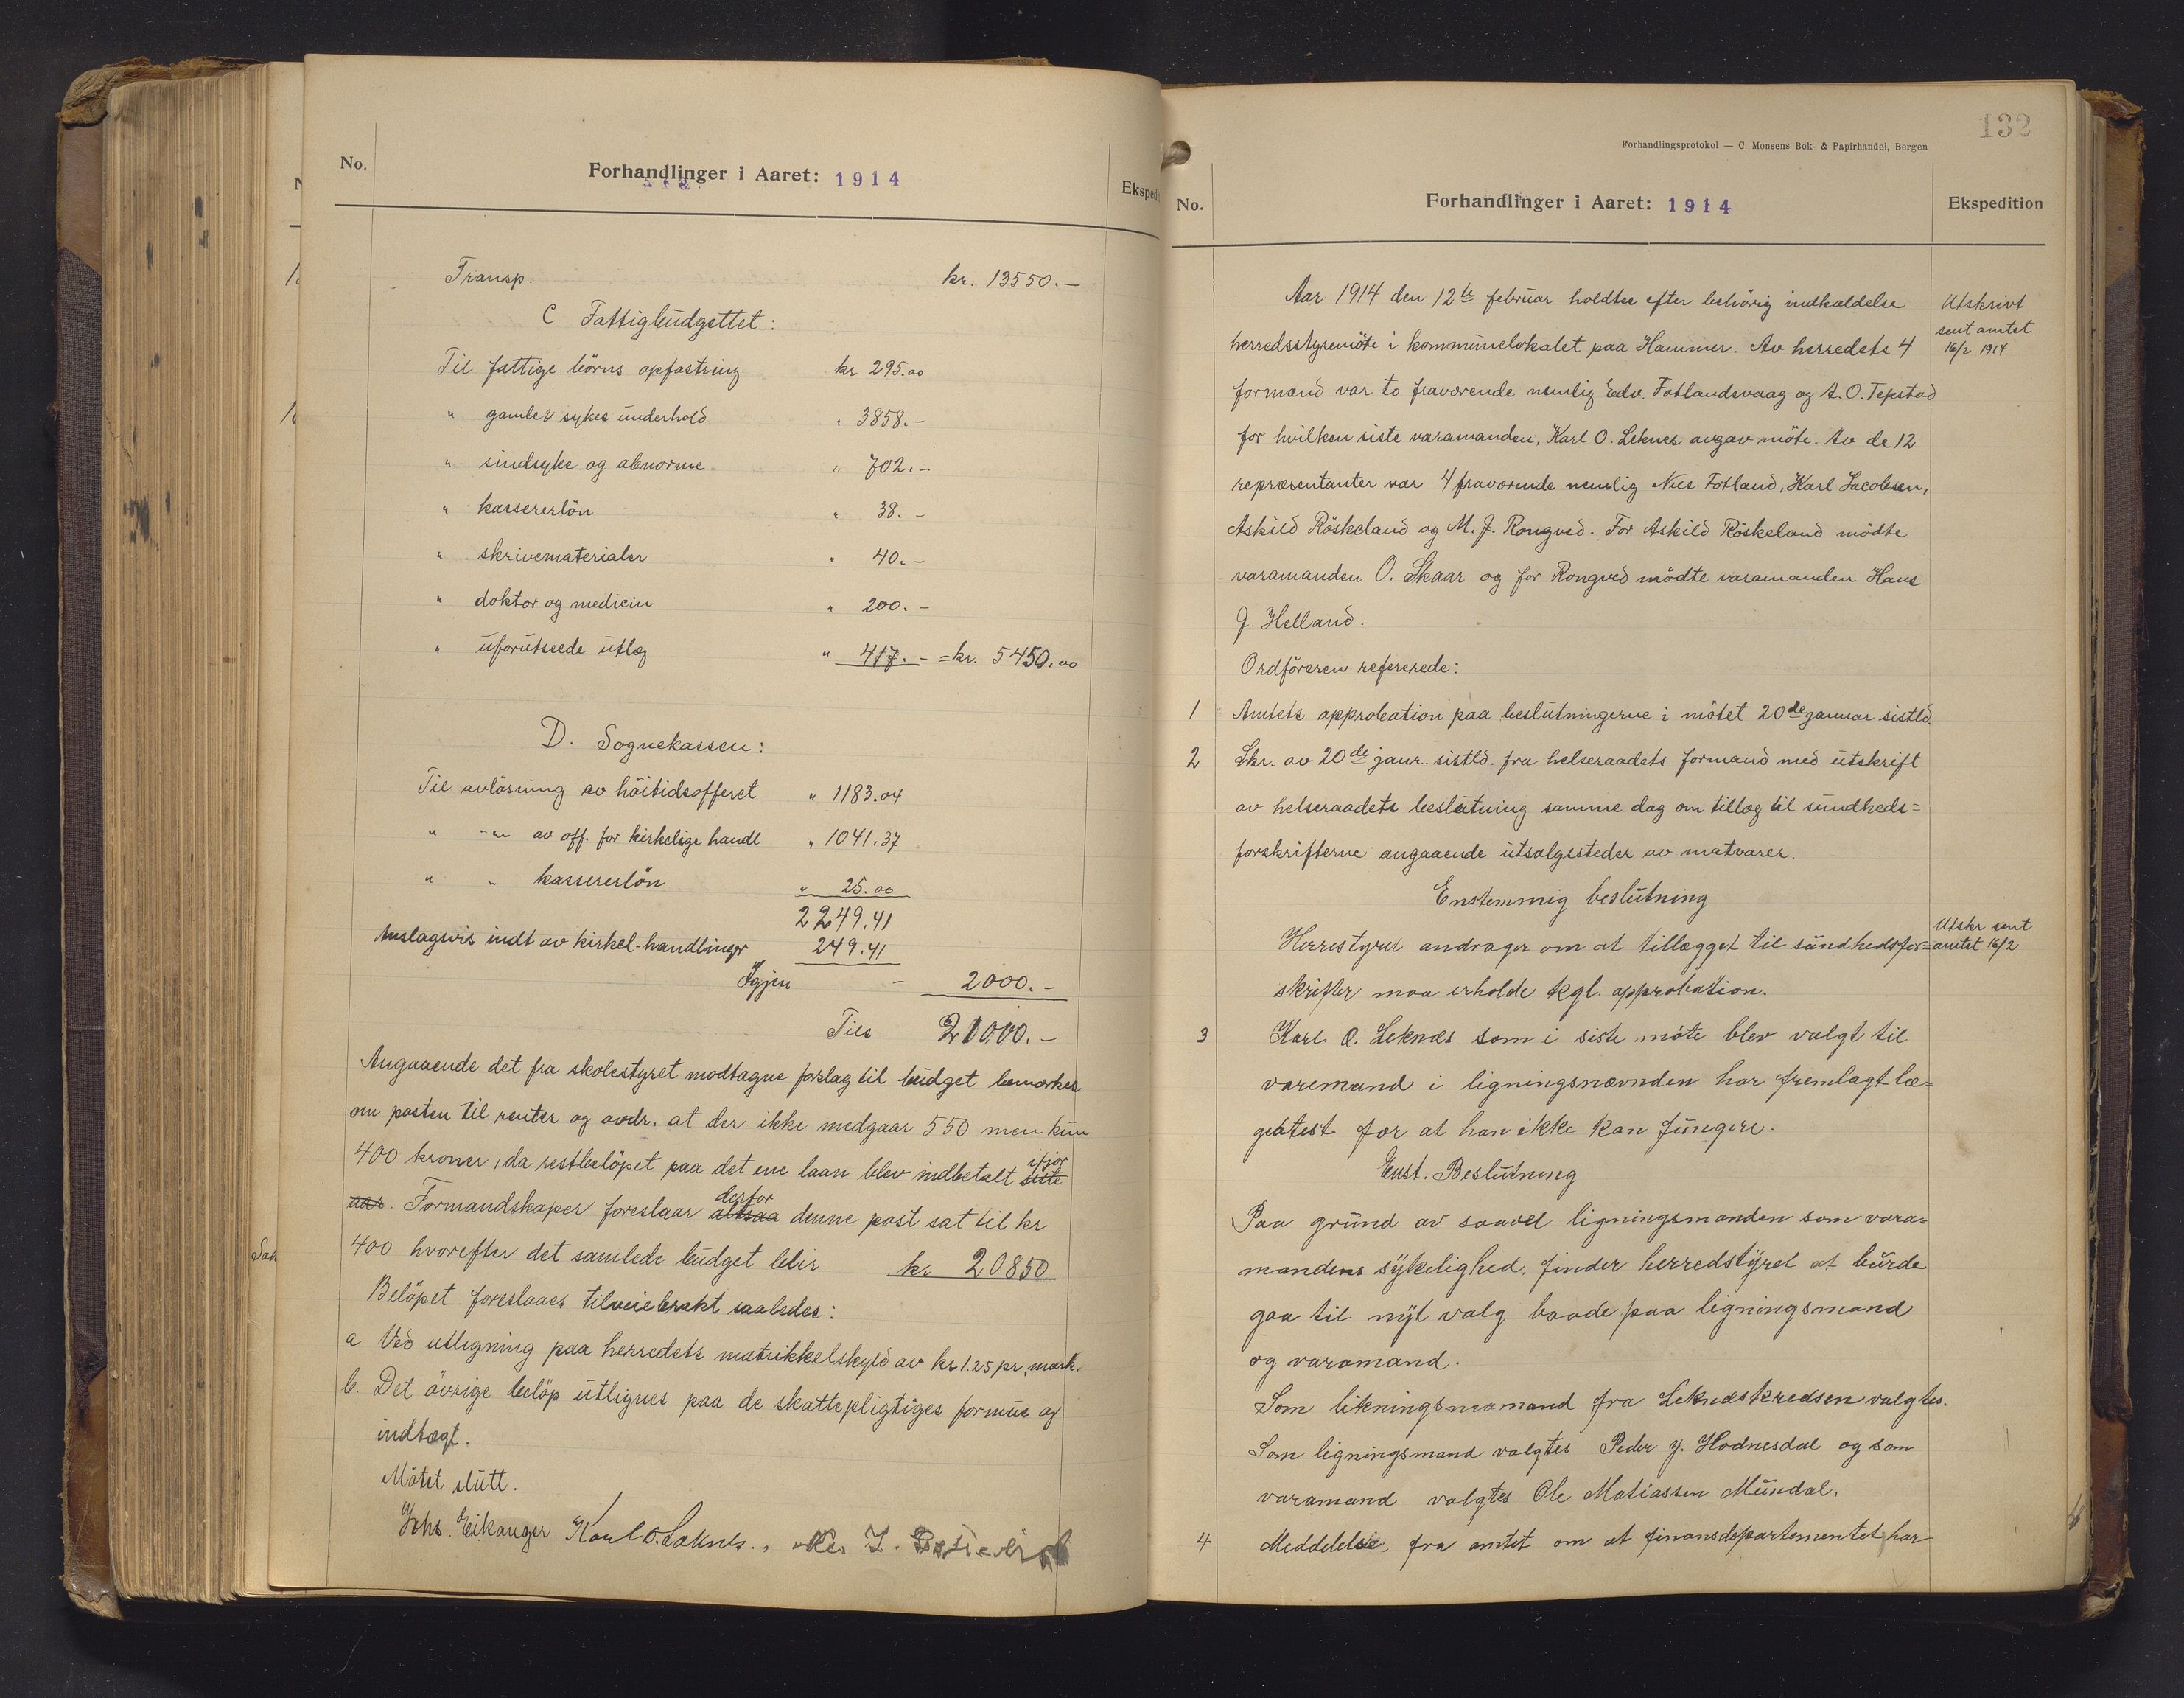 No.
Forhandlinger i Aaret: 1914
Ekspedi
Transp. kr. 13550.-
C Fattigbudgettet:
Til fattige börns opfostring kr 295.00
" gamles sykes underhold " 3858.-
" sindsyke og abnorme " 702.-
" kassererlön " 38.-
" skrivematerialer " 40.-
" doktor og medicin " 200.-
" uforutseede utlæg " 417.- = kr. 5450.00
D. Sognekassen:
Til avlösning av höitidsofferet " 1183.04
" -"- av off. for kirkelige handl " 1041.37
" " kassererlön " 25.00
2249.41
Anslagsvis indt av kirkel-handlinger 249.41
Igjen - 2000.-
Tils 21000.-
Angaaende det fra skolestyret modtagne forslag til budget bemerkes
om posten til renter og avdr. at der ikke medgaar 550 men kun
400 kroner, da restbelöpet paa det ene laan blev indbetalt siste ifjor
aar. Formandskapet foreslaar altsaa derfor denne post sat til kr
400 hvorefter det samlede budget blir kr 20850
Belöpet foreslaaes tilveiebrakt saaledes:
a Ved utligning paa herredets matrikkelskyld av kr 1.25 pr. mark.
b. Det övrige belöp utlignes paa de skattepligtiges formue og
indtægt.
Mötet slutt.
Johs. Eikanger Karl O. Leknes.
132
Forhandlingsprotokol — C. Monsens Bok- & Papirhandel, Bergen
No.
Forhandlinger i Aaret: 1914
Ekspedition
Aar 1914 den 12te februar holdtes efter behörig indkaldelse
herredsstyremöte i kommunelokalet paa Hammer. Av herredets 4
formænd var to fraværende nemlig Edv. Fotlandsvaag og A. O. Tepstad
for hvilken siste varamanden, Karl O. Leknes avgav möte. Av de 12
repræsentanter var 4 fraværende nemlig Nils Fotland, Karl Jacobsen,
Askild Röskeland og M. J. Rongved. For Askild Röskeland mödte
varamanden O. Skaar og for Rongved mödte varamanden Hans
J. Helland.
Utskrivt
sent amtet
16/2 1914
Ordföreren refererede:
1 Amtets approbation paa beslutningerne i mötet 20de januar sistld.
2 Skr. av 20de janr. sistld. fra helseraadets formand med utskrift
av helseraadets beslutning samme dag om tillæg til sundheds=
forskrifterne angaaende utsalgssteder av matvarer.
Enstemmig beslutning
Herrestyret andrager om at tillægget til sundhedsfor=
skrifter maa erholde kgl. approbation.
Utskr sent
amtet 16/2
3 Karl O. Leknes som i siste möte blev valgt til
varemand i ligningsnævnden har fremlagt læ=
geatest for at han ikke kan fungere.
Enst. Beslutning
Paa grund av saavel ligningsmanden som vara=
mandens sykelighed, finder herredstyret at burde
gaa til nyt valg baade paa ligningsmand
og varamand.
Som likningsmamand fra Leknæskredsen valgtes.
Som ligningsmand valgtes Peder J. Hodnesdal og som
varamand valgtes Ole Matiassen Mundal.
4 Meddelelse fra amtet om at finansdepartementet har